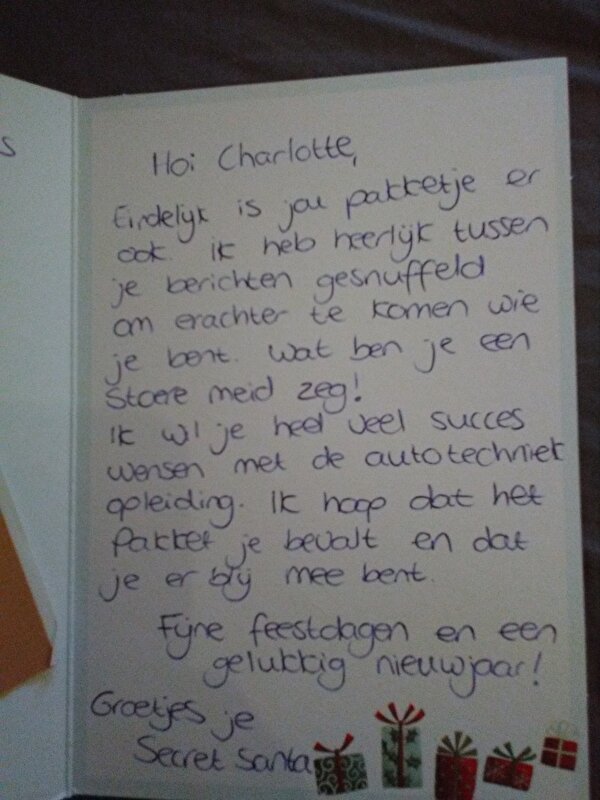 s
Hoi Charlotte,
Eindelijk is jou pakketje er
ook. ik heb heerlijk tussen
je berichten gesnuffeld
om erachter te komen wie
je bent. Wat ben je een
stoere meid zeg!
Ik wil je heel veel succes
wensen met de autotechniek
opleiding. Ik hoop dat het
Pakket je bevalt en dat
je er blij mee bent.
Fijne feestdagen en een
gelukkig nieuwjaar!
Groetjes je
Secret Santa